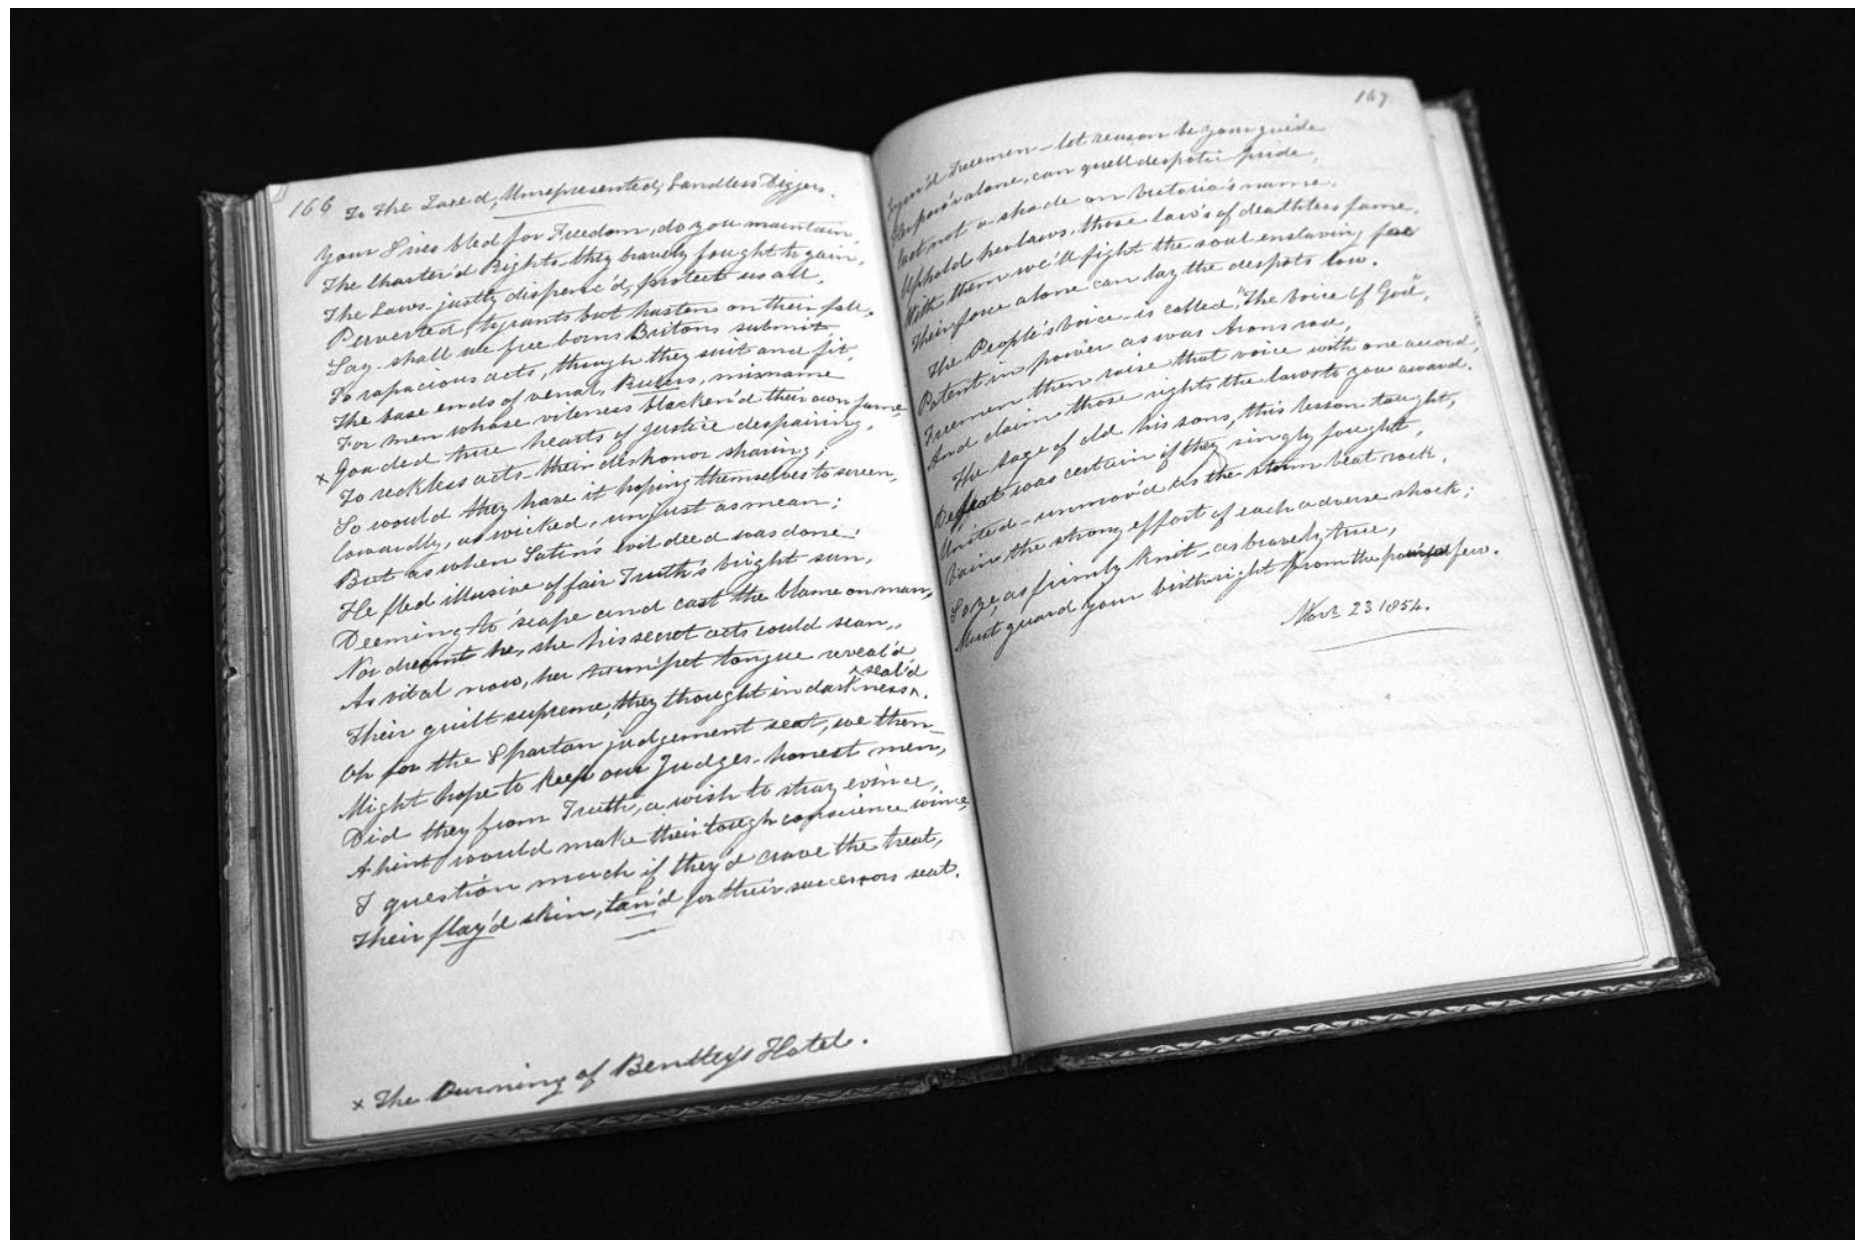 166 To the Taxed, Unrepresented, Landless Diggers.
Your Sires bled for Freedom, do you maintain,
The Charter'd Rights they bravely fought to gain,
The Laws justly dispens'd, protect us all,
Perverted, tyrants but hasten on their fall.
Say shall we free born Britons submit
To rapacious acts, though they suit and fit
The base ends of venal, Rulers, misname
For men whose vileness blacken'd their own fame,
x Goaded true hearts of justice despairing,
To reckless acts their dishonor sharing;
So would they have it hoping themselves to screen,
Cowardly, as wicked, unjust as mean;
But as when Satin's evil deed was done
He fled illusive of fair Truth's bright sun,
Deeming to 'scape and cast the blame on man,
Nor dreamt he, she his secret acts could scan,
As vital now, her trumpet tongue reveal'd
Their guilt supreme, they thought in darkness seal'd.
Oh for the Spartan judgement seat, we then
Might hope to keep our Judges honest men,
Did they from Truth, a wish to stray evince,
A hint would make their tough conscience wince,
I question much if they'd crave the treat,
Their flay'd skin, tan'd for their successors seat.
x The Burning of Bentley's Hotel.
167
Freemen let reason be your guide
alone, can quell despotic pride,
not a shade on Victoria's name,
Uphold her laws, those law's of deathless fame.
With them we'll fight the soul enslaving foe
Their force alone can lay the despots low.
The People's Voice is called, "The Voice Of God",
Potent in power as was Arons rod,
Freemen then raise that voice with one accord,
And claim those rights the laws to you award.
The Sage of old his sons, this lesson taught,
Defeat was certain if they singly fought,
United unmov'd as the storm beat rock,
Vain the strong effort of each adverse shock;
So ye, as firmly knit as bravely true,
Must guard your birthright from the few.
Novr 23 1854.